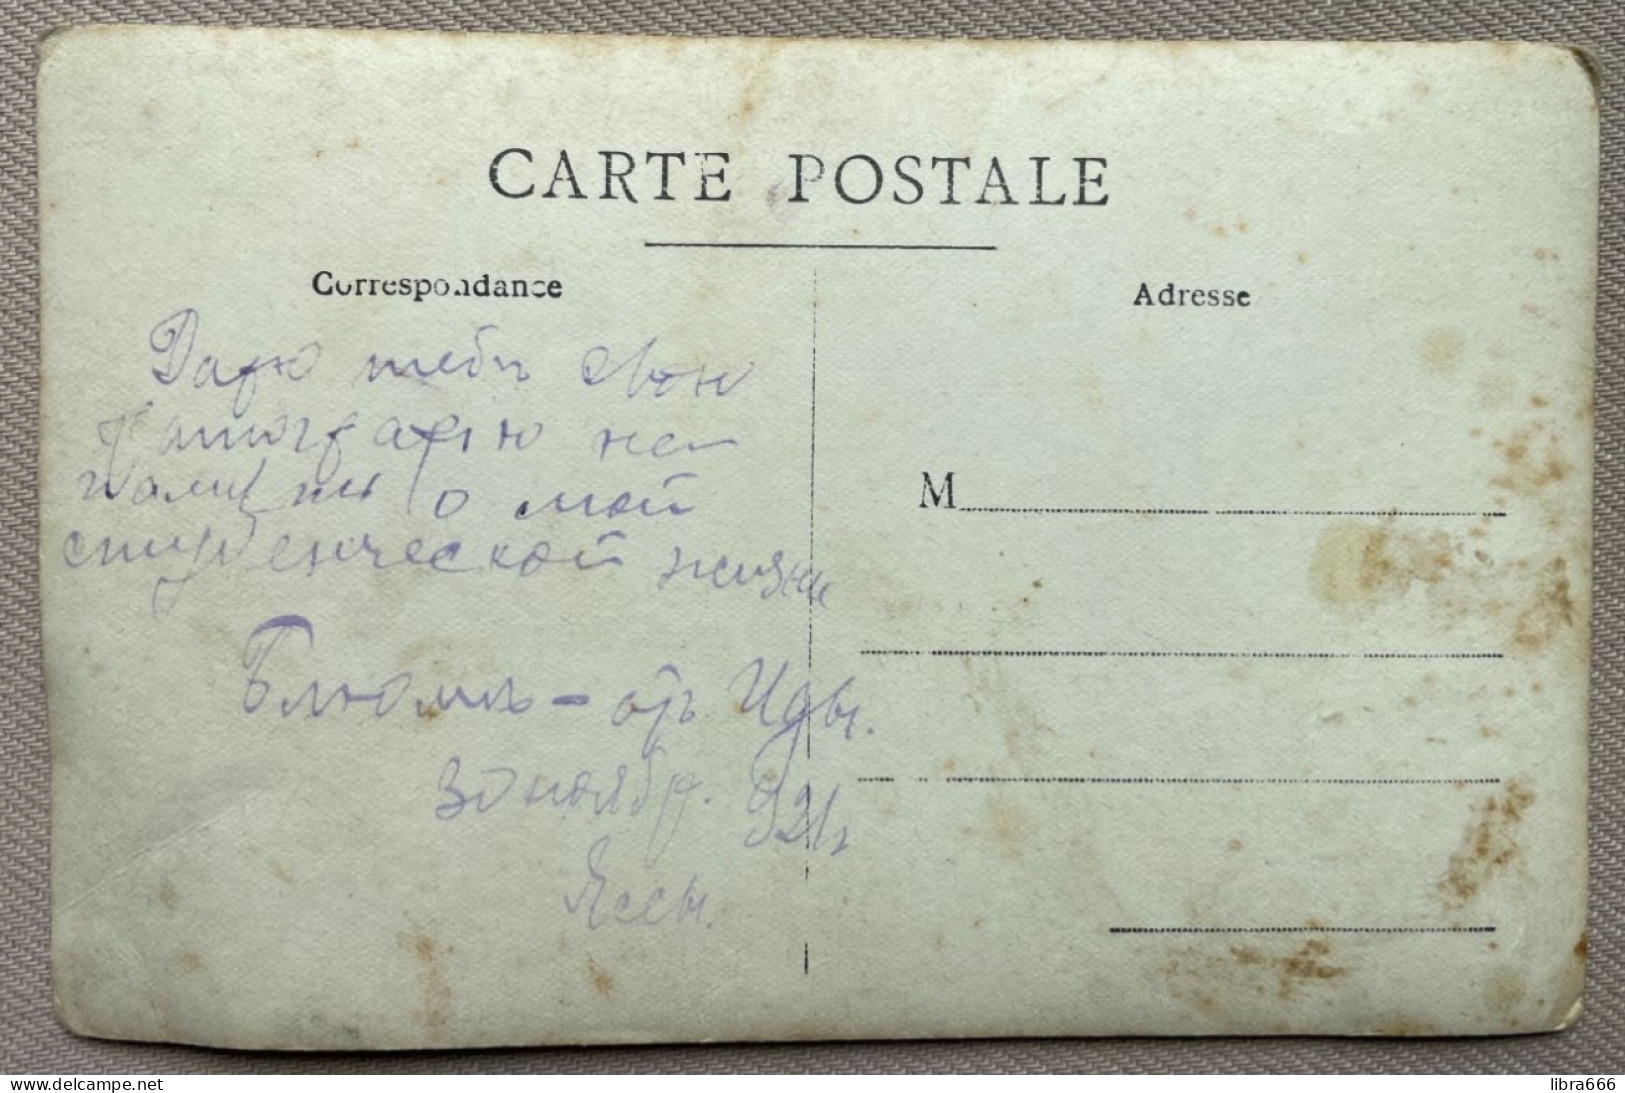 CARTE POSTALE
Correspondance
Adresse
Дарю тебѣ свою
фотографію на
о моей
студенческой жизни
M
Блюмъ - отъ Иды.
30 ноябр. 921г
Яссы.
delcampe.net
libra666